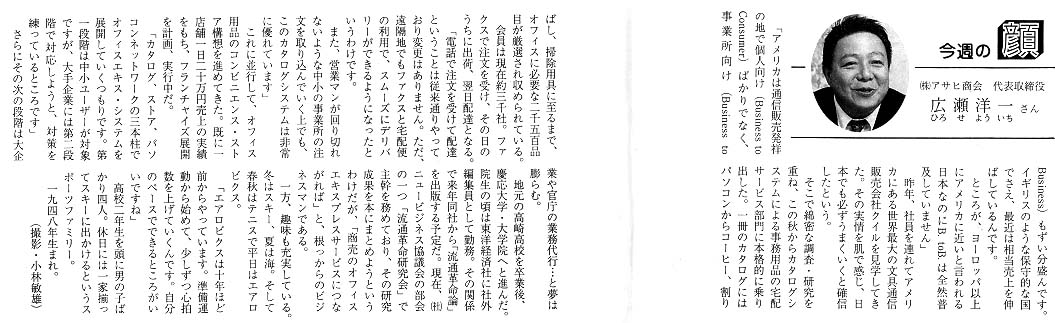 今週の顔
㈱アサヒ商会 代表取締役
広瀬洋一さん
ひろ せ よう いち
「アメリカは通信販売発祥
の地で個人向け（Business to
Consumer）ばかりでなく、
事業所向け（Business to
Business）もずい分盛んです。
イギリスのような保守的な国
でさえ、最近は相当売上を伸
ばしているんです。
ところが、ヨーロッパ以上
にアメリカに近いと言われる
日本なのにB to Bは全然普
及していません」
昨年、社員を連れてアメリ
カにある世界最大の文具通信
販売会社クイルを見学してき
た。その実情を肌で感じ、日
本でも必ずうまくいくと確信
したという。
そこで綿密な調査・研究を
重ね、この秋からカタログシ
ステムによる事務用品の宅配
サービス部門に本格的に乗り
出した。一冊のカタログには
パソコンからコーヒー、割り
ばし、掃除用具に至るまで、
オフィスに必要な二千五百品
目が厳選され収められている。
会員は現在約三千社。ファ
クスで注文を受け、その日の
うちに出荷、翌日配達となる。
「電話で注文を受けて配達
ということは従来通りやって
おり変更はありません。ただ、
遠隔地でもファクスと宅配便
の利用で、スムーズにデリバ
リーができるようになったと
いうわけです。
また、営業マンが回り切れ
ないような中小の事業所の注
文を取り込んでいく上でも、
このカタログシステムは非常
に優れています」
これと並行して、オフィス
用品のコンビニエンス・スト
ア構想を進めてきた。既に一
店舗一日二十万円売上の実績
をもち、フランチャイズ展開
を計画、実行中だ。
「カタログ、ストア、パソ
コンネットワークの三本柱で
オフィスエキス・システムを
展開していくつもりです。第
一段階は中小ユーザーが対象
ですが、大手企業には第二段
階で対応しようと、対策を
練っているところです」
さらにその次の段階は大企
業や官庁の業務代行…と夢は
膨らむ。
地元の高崎高校を卒業後、
慶応大学・大学院へと進んだ。
院生の頃は東洋経済社に社外
編集員として勤務。その関係
で来年同社から「流通革命論」
を出版する予定だ。現在、㈳
ニュービジネス協議会の部会
の一つ「流通革命研究会」で
主幹を務めており、その研究
成果を本にまとめようという
わけだが、「商売のオフィス
エキスプレスサービスにつな
がれば」と、根っからのビジ
ネスマンである。
一方、趣味も充実している。
冬はスキー、夏は海。そして
春秋はテニスで平日はエアロ
ビクス。
「エアロビクスは十年ほど
前からやっています。準備運
動から始めて、少しずつ心拍
数を上げていくんです。自分
のペースでできるところがい
いですね」
高校二年生を頭に男の子ば
かり四人。休日には一家揃っ
てスキーに出かけるというス
ポーツファミリー。
一九四八年生まれ。
（撮影・小林敏雄）